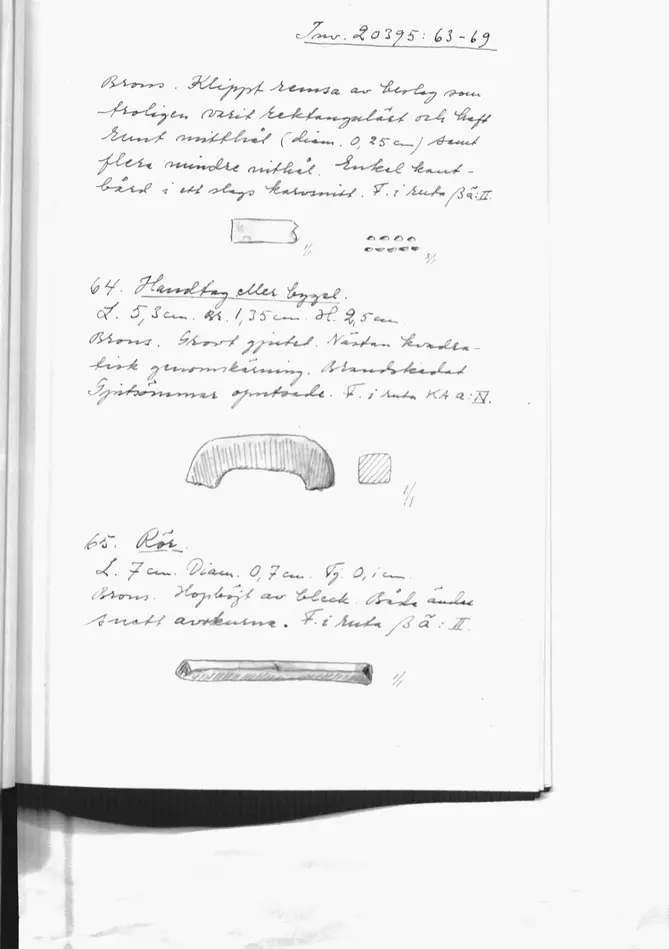 Inv. 20395: 63-69
Brons. Klippt remsa av beslag som
troligen varit rektangulärt och haft
runt mitthål (diam. 0,25 cm) samt
flera mindre nithål. Enkel kant-
bård i ett slags karvsnitt. F. i ruta ßä:II.
1/1
2/1
64. Handtag eller bygel.
L. 5,3 cm. Br. 1,35 cm. H. 2,5 cm.
Brons. Grovt gjuted. Nästan kvadra-
tisk genomskärning. Brandskadat
Gjutsömmar oputsade. F. i ruta KA a: IV.
1/1
65. Rör.
L. 7 cm. Diam. 0,7 cm. Tj. 0,1 cm.
Brons. Hopböjt av bleck. Båda ändar
snett avskurna. F. i ruta ß ä: II.
1/1